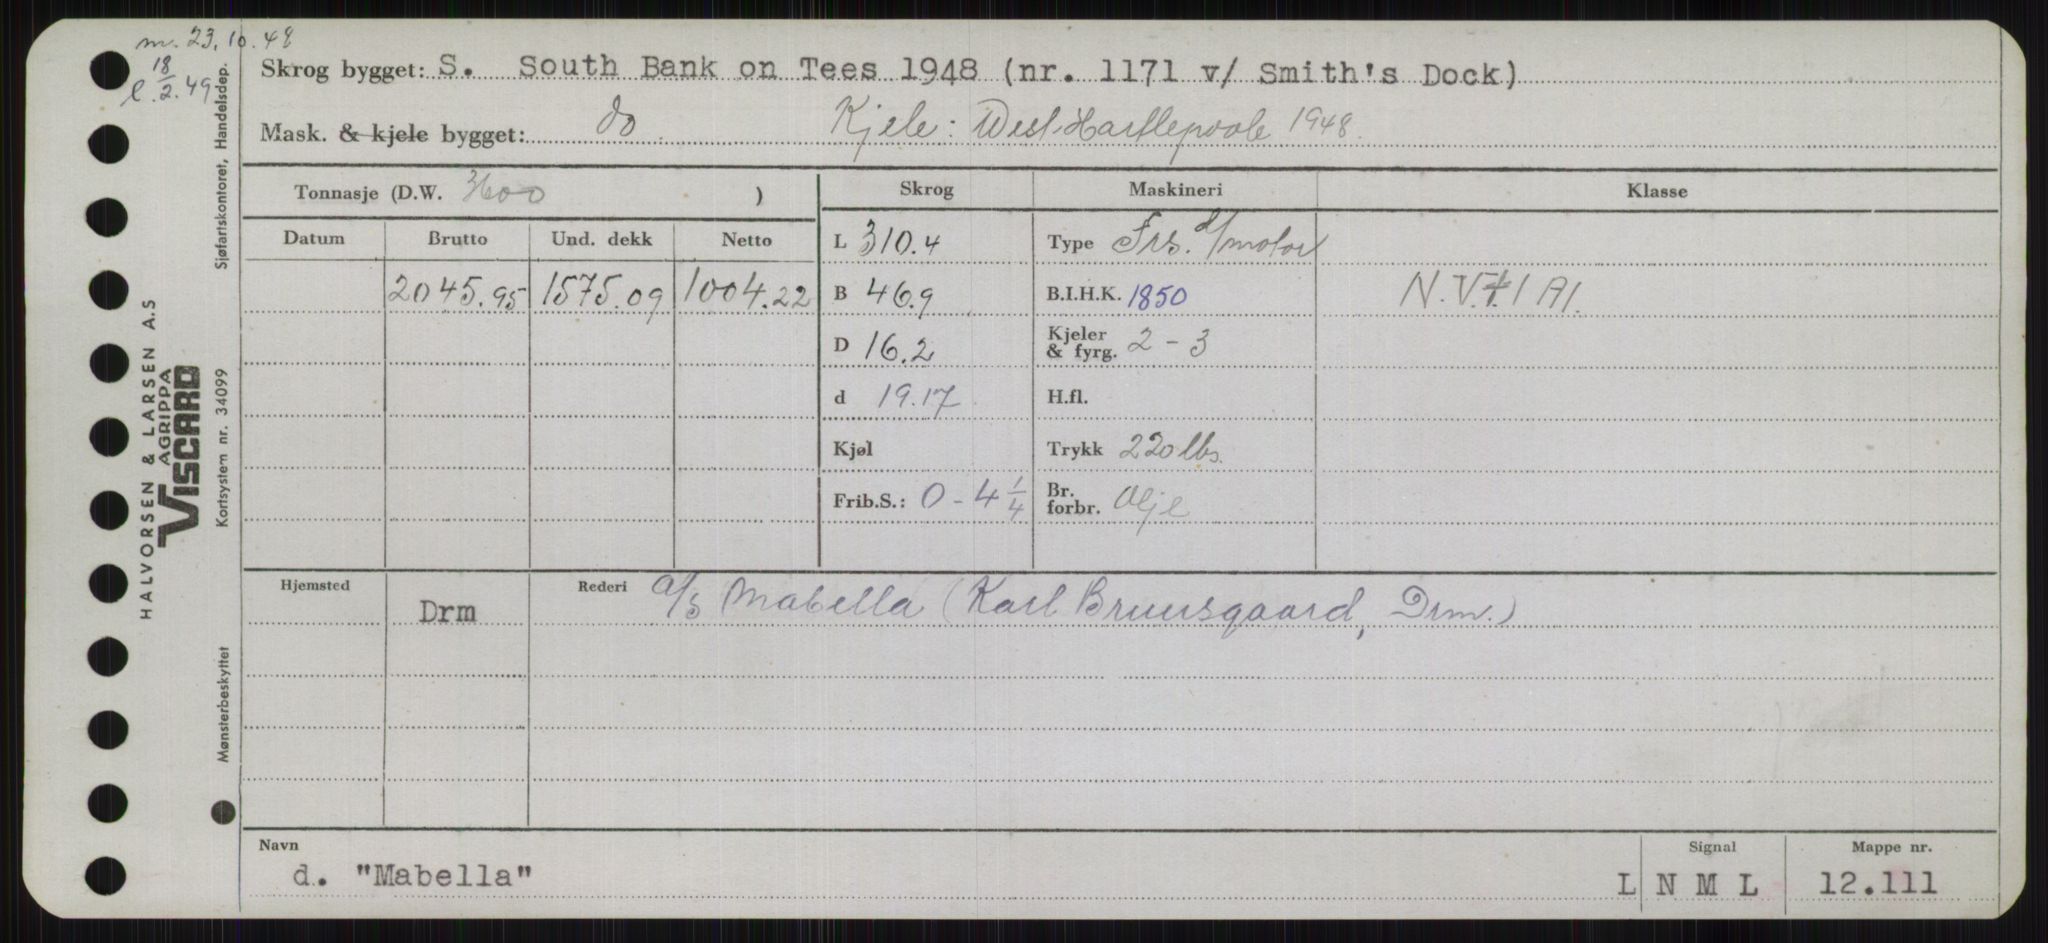 m. 23.10.48
l. 18/2.49
Skrog bygget: S. South Bank on Tees 1948 (nr. 1171 v/ Smith's Dock)
Mask. & kjele bygget: do. Kjele: West-Hartlepoole 1948.
Tonnasje (D.W. 3600 )
Skrog Maskineri Klasse
Datum Brutto Und. dekk Netto
2045.95 1575.09 1004.22
L 310.4
B 46.9
D 16.2
d 19.17
Kjøl
Frib.S.: 0-4 1/4
Type Frs. d/motor
B.I.H.K. 1850
Kjeler
& fyrg. 2-3
H.fl.
Trykk 220 lbs.
Br.
forbr. Olje
N.V. ‡1 A1.
Hjemsted Drm
Rederi A/S Mabella (Karl Bruusgaard, Drm.)
Navn
d. "Mabella"
Signal
L N M L
Mappe nr.
12.111
Sjøfartskontoret, Handelsdep.
HALVORSEN & LARSEN A.S
AGRIPPA
VISCARD
Kortsystem nr. 34099
Mønsterbeskyttet